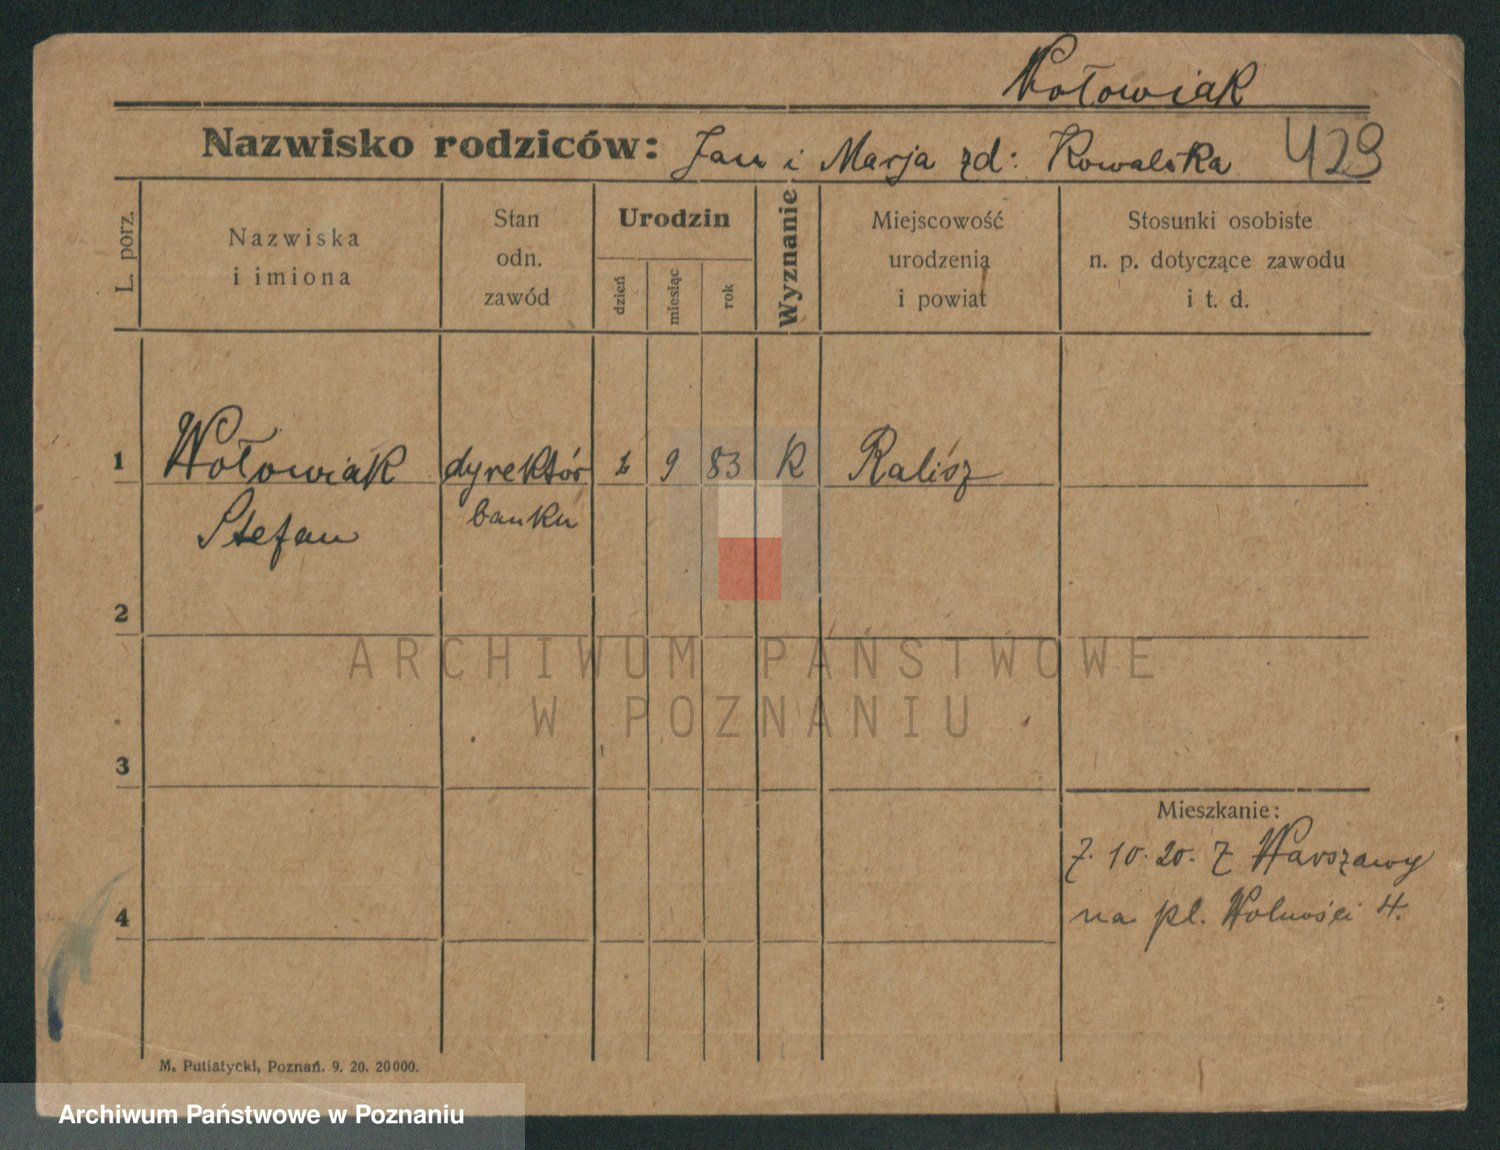 Wołowiak
Nazwisko rodziców: Jan i Marja zd: Kowalska 429
L. porz.
Nazwiska
i imiona
Stan
odn.
zawód
Urodzin
dzień
miesiąc
rok
Wyznanie
Miejscowość
urodzenia
i powiat
Stosunki osobiste
n. p. dotyczące zawodu
i t. d.
1 Wołowiak dyrektór 9 83 K Kalisz
Stefan banku
2
ARCHIWUM PAŃSTWOWE
W POZNANIU
3
Mieszkanie:
7. 10. 20. Z Warszawy
na pl. Wolności 4.
4
M. Putiatycki, Poznań. 9. 20. 20000.
Archiwum Państwowe w Poznaniu